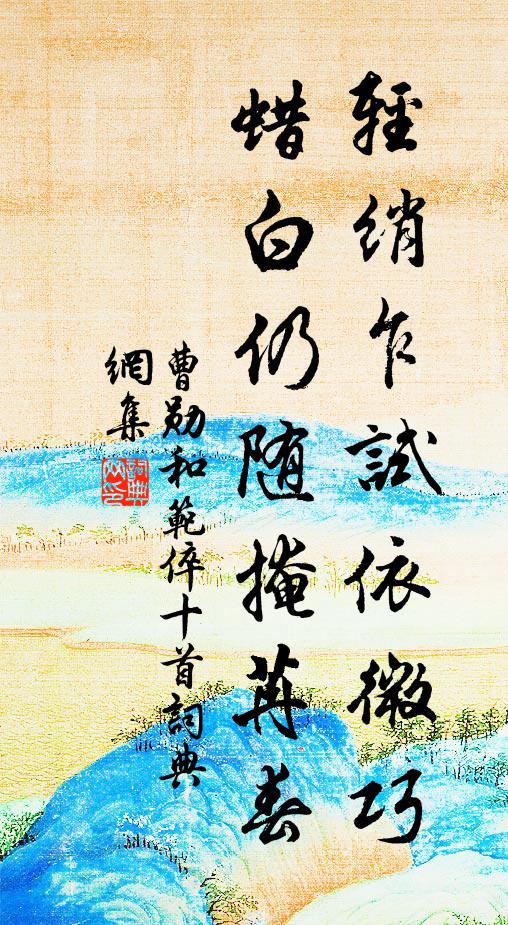 輕綃乍試依微巧
蜡白仍随掩苒春
曹勛和範倅十首詞典
網集
詞典網印